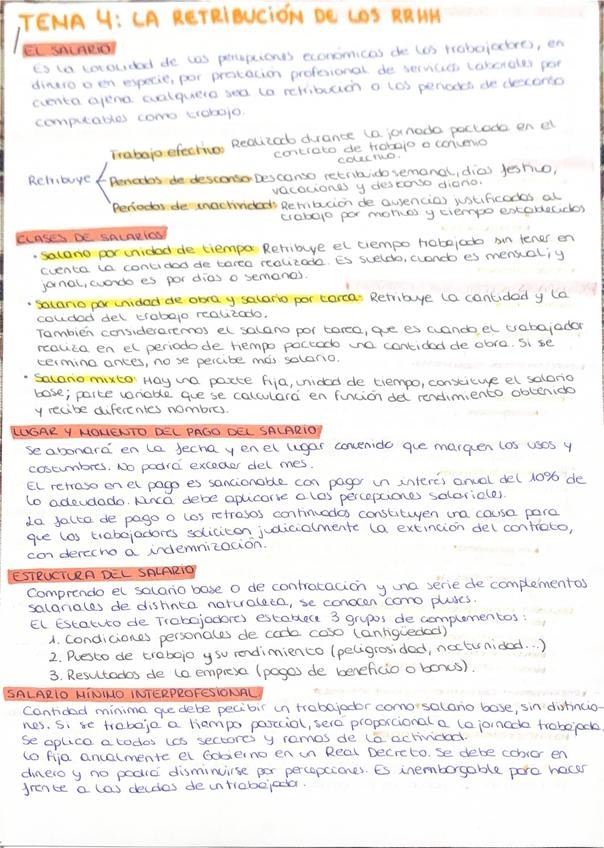 TEMA 4: LA RETRIBUCIÓN DE LOS RRHH
EL SALARIO
Es la totalidad de las percepciones económicas de los trabajadores, en
dinero o en especie, por prestación profesional de servicios laborales por
cuenta ajena cualquiera sea la retribución o los periodos de descanso
computables como trabajo.
Trabajo efectivo: Realizado durante la jornada pactada en el
contrato de trabajo o convenio
colectivo.
Retribuye
Periodos de descanso: Descanso retribuido semanal, días festivo,
vacaciones y descanso diario.
Períodos de inactividad: Retribución de ausencias justificadas al
trabajo por motivos y tiempo establecidos
CLASES DE SALARIOS
· Salario por unidad de tiempo: Retribuye el tiempo trabajado sin tener en
cuenta la cantidad de tarea realizada. Es sueldo, cuando es mensual; y
jornal, cuando es por días o semanas.
· Salario por unidad de obra y salario por tarea: Retribuye la cantidad y la
calidad del trabajo realizado.
También consideraremos el salario por tarea, que es cuando el trabajador
realiza en el periodo de tiempo pactado una cantidad de obra. Si se
termina antes, no se percibe más salario.
· Salario mixto: Hay una parte fija, unidad de tiempo, constituye el salario
base; parte variable que se calculará en función del rendimiento obtenido
y recibe diferentes nombres.
LUGAR Y MOMENTO DEL PAGO DEL SALARIO
Se abonará en la fecha y en el lugar convenido que marquen los usos y
costumbres. No podrá exceder del mes.
El retraso en el pago es sancionable con pagar un interés anual del 10% de
lo adeudado. Nunca debe aplicarse a las percepciones salariales.
La falta de pago o los retrasos continuados constituyen una causa para
que los trabajadores soliciten judicialmente la extinción del contrato,
con derecho a indemnización.
ESTRUCTURA DEL SALARIO
Comprende el salario base o de contratación y una serie de complementos
salariales de distinta naturaleza, se conocen como pluses.
El Estatuto de Trabajadores establece 3 grupos de complementos:
1. Condiciones personales de cada caso (antigüedad)
2. Puesto de trabajo y su rendimiento (peligrosidad, nocturnidad...)
3. Resultados de la empresa (pagas de beneficio o bonus).
SALARIO MÍNIMO INTERPROFESIONAL
Cantidad mínima que debe pecibir un trabajador como salario base, sin distincio-
nes. Si se trabaja a tiempo parcial, será proporcional a la jornada trabajada.
Se aplica a todos los sectores y ramas de la actividad.
Lo fija anualmente el Gobierno en un Real Decreto. Se debe cobrar en
dinero y no podrá disminuirse por percepciones. Es inembargable para hacer
frente a las deudas de un trabajador.